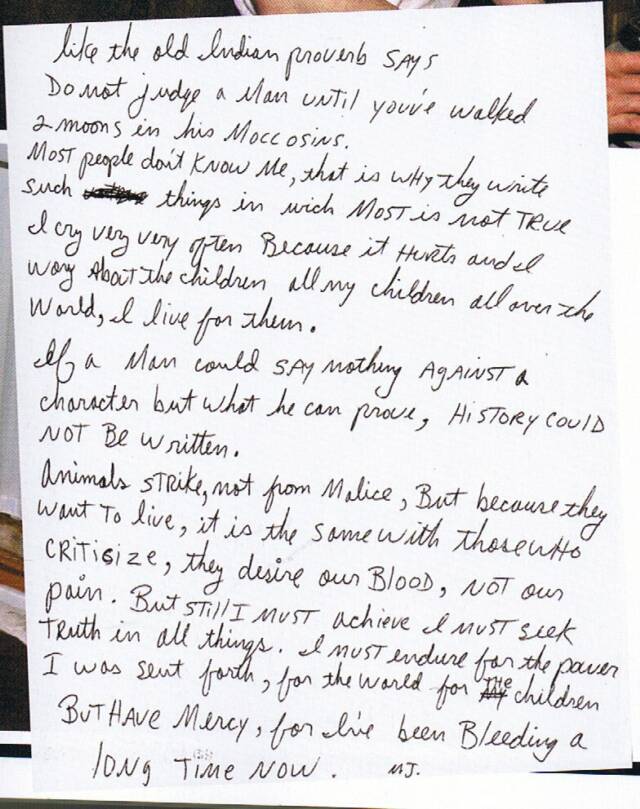 like the old Indian proverb SAYS
Do not judge a Man UNTIL you've walked
2 moons in his Moccosins.
MOST people don't KNOW Me, that is WHY they write
such things in wich MOST is not TRUE
I cry very very often Because it HURTS and I
wory About the children all my children all over the
World, I live for them.
If a Man could SAY nothing AGAINST a
character but what he can prove, HISTORY COULD
NOT BE written.
Animals STRIKE, not from Malice, But because they
want To live, it is the same with those who
CRITISIZE, they desire our BLOOD, NOT our
pain. But STILL I MUST achieve I MUST seek
TRUTH in all things. I MUST endure for the power
I was sent forth, for the world for THE children
BUT HAVE Mercy, for I've been Bleeding a
long Time NOW. MJ.